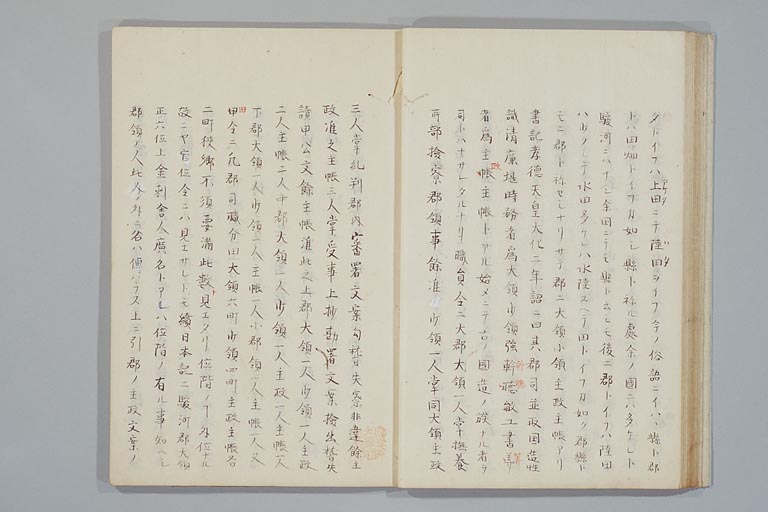 タトイフハ上田ニテ陸田ヲイフ今ノ俗語ニイハヽ縣ト郡
トハ田ト畑トイフカ如シ縣ト祢ル處余ノ國ニハ多ケレト
駿河ニハナシ余国ニテモ縣ト云シモ後ニ郡トイフハ陸田
ハ少クシテ水田多ケレハ水陸スヘテ田トイフカ如ク郡縣ト
モニ郡ト祢セシナリサテ郡ニ大領小領主政主帳アリ
書記孝德天皇大化二年詔ニ曰其郡司並取国造性
識清廉堪時務者為大領少領強幹聰敏工書算
者為主政主帳トアル始メニテ古ノ國造ノ族ナル者ヲ
司トハナサレタルナリ職員令ニ大郡大領一人掌撫養
所部撿察郡領事餘准 少領一人掌同大領主政
三人掌糺判郡内審署文案勾稽失察非違餘主
政准之主帳三人掌受事上抄勘署文案撿出稽失
讀申公文餘主帳准此之上郡大領一人少領一人主政
二人主帳二人中郡大領一人少領一人主政一人主帳一人
下郡大領一人少領一人主帳一人小郡領一人主帳一人又
田令ニ凡郡司職分田大領六町少領四町主政主帳各
二町狭郷不須要滿此數見エタリ位階ノ下外位ナル
故ニヤ官位令ニハ見エサレトモ續日本記ニ駿河郡大領
正六位上金刺舎人廣名トアレハ位階ノ有ル事知ヘシ
郡領ノ人此 外ニ名ハ傳ハラス上ニ引郡ノ主政文案ノ